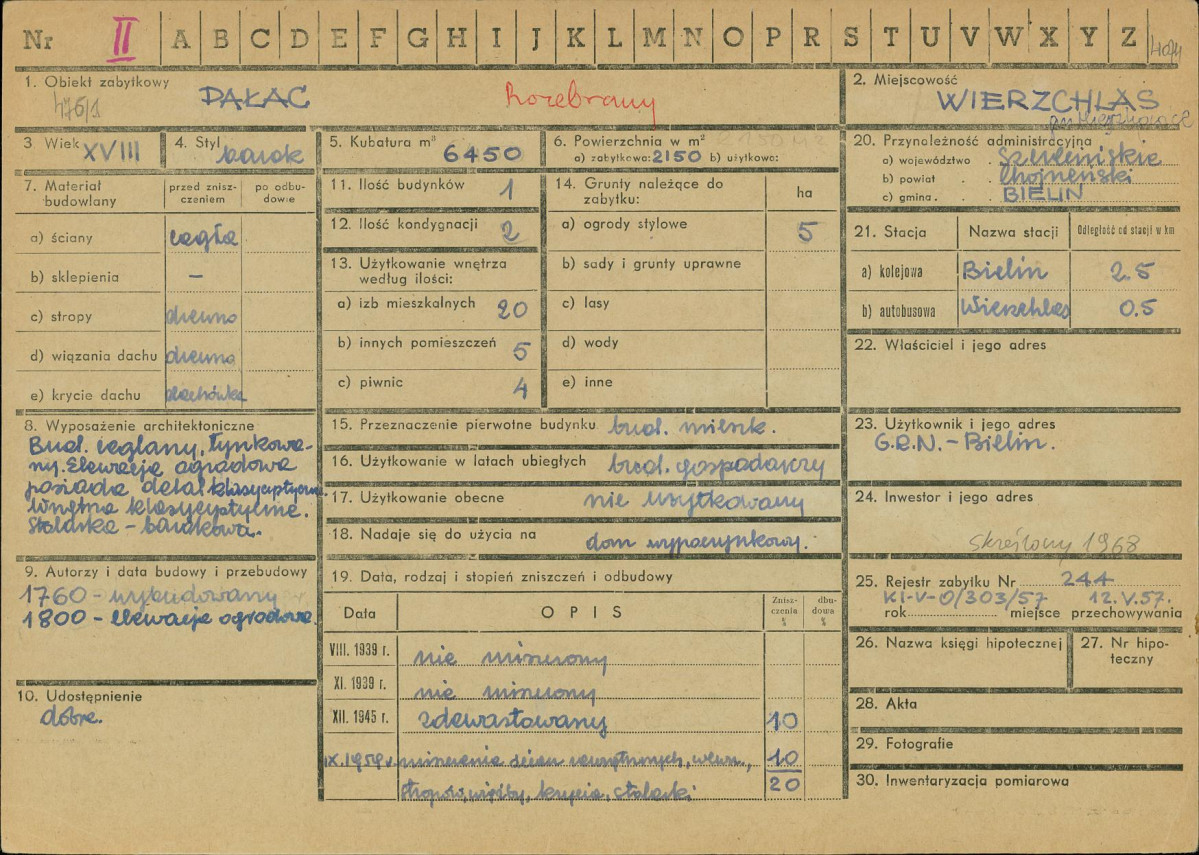 Nr II A B C D E F G H I J K L M N O P R S T U V W X Y Z
1. Obiekt zabytkowy
476/1 PAŁAC Rozebrany
2. Miejscowość
WIERZCHLAS
3 Wiek XVIII
4. Styl barok
5. Kubatura m³ 6450
6. Powierzchnia w m²
a) zabytkowa: 2150 b) użytkowa:
7. Materiał budowlany
przed zniszczeniem
po odbudowie
a) ściany cegła
b) sklepienia –
c) stropy drewno
d) wiązania dachu drewno
e) krycie dachu dachówka
8. Wyposażenie architektoniczne
Bud. ceglany, tynkowa-
ny. Elewacja ogrodowa
posiada detal klasycystyczny.
Wnętrza klasycystyczne.
Stolarka – barokowa.
9. Autorzy i data budowy i przebudowy
1760 – wybudowany
1800 – elewacja ogrodowa
10. Udostępnienie
dobre.
11. Ilość budynków 1
12. Ilość kondygnacji 2
13. Użytkowanie wnętrza
według ilości:
a) izb mieszkalnych 20
b) innych pomieszczeń 5
c) piwnic 4
14. Grunty należące do
zabytku:
ha
a) ogrody stylowe 5
b) sady i grunty uprawne
c) lasy
d) wody
e) inne
15. Przeznaczenie pierwotne budynku bud. mieszk.
16. Użytkowanie w latach ubiegłych bud. gospodarczy
17. Użytkowanie obecne nie użytkowany
18. Nadaje się do użycia na dom wypoczynkowy.
19. Data, rodzaj i stopień zniszczeń i odbudowy
Data
OPIS
Znisz-
czenia
%
dbu-
dowa
%
VIII. 1939 r. nie niszczony
XI. 1939 r. nie niszczony
XII. 1945 r. zdewastowany 10
IX. 1959 r. niszczenia ścian zewnętrznych, wewn., 10
stropów, więźby, krycia, stolarki 20
20. Przynależność administracyjna
a) województwo . Szczecińskie
b) powiat . . Chojneński
c) gmina . . BIELIN
21. Stacja
Nazwa stacji
Odległość od stacji w km
a) kolejowa Bielin 2.5
b) autobusowa Wierzchlas 0.5
22. Właściciel i jego adres
23. Użytkownik i jego adres
G.R.N. – Bielin.
24. Inwestor i jego adres
Skreślony 1968
25. Rejestr zabytku Nr 244
Kl-V-0/303/57 12.V.57.
rok miejsce przechowywania
26. Nazwa księgi hipotecznej
27. Nr hipo-
teczny
28. Akta
29. Fotografie
30. Inwentaryzacja pomiarowa